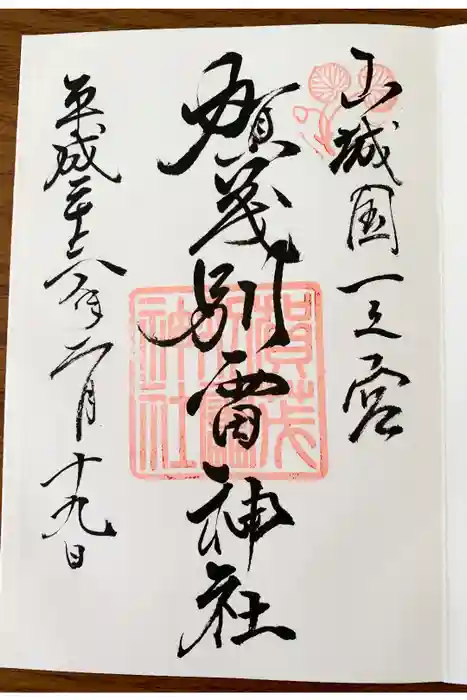 山城国一之宮
賀茂別雷神社
平成二十六年二月十九日
賀茂
別雷
神社